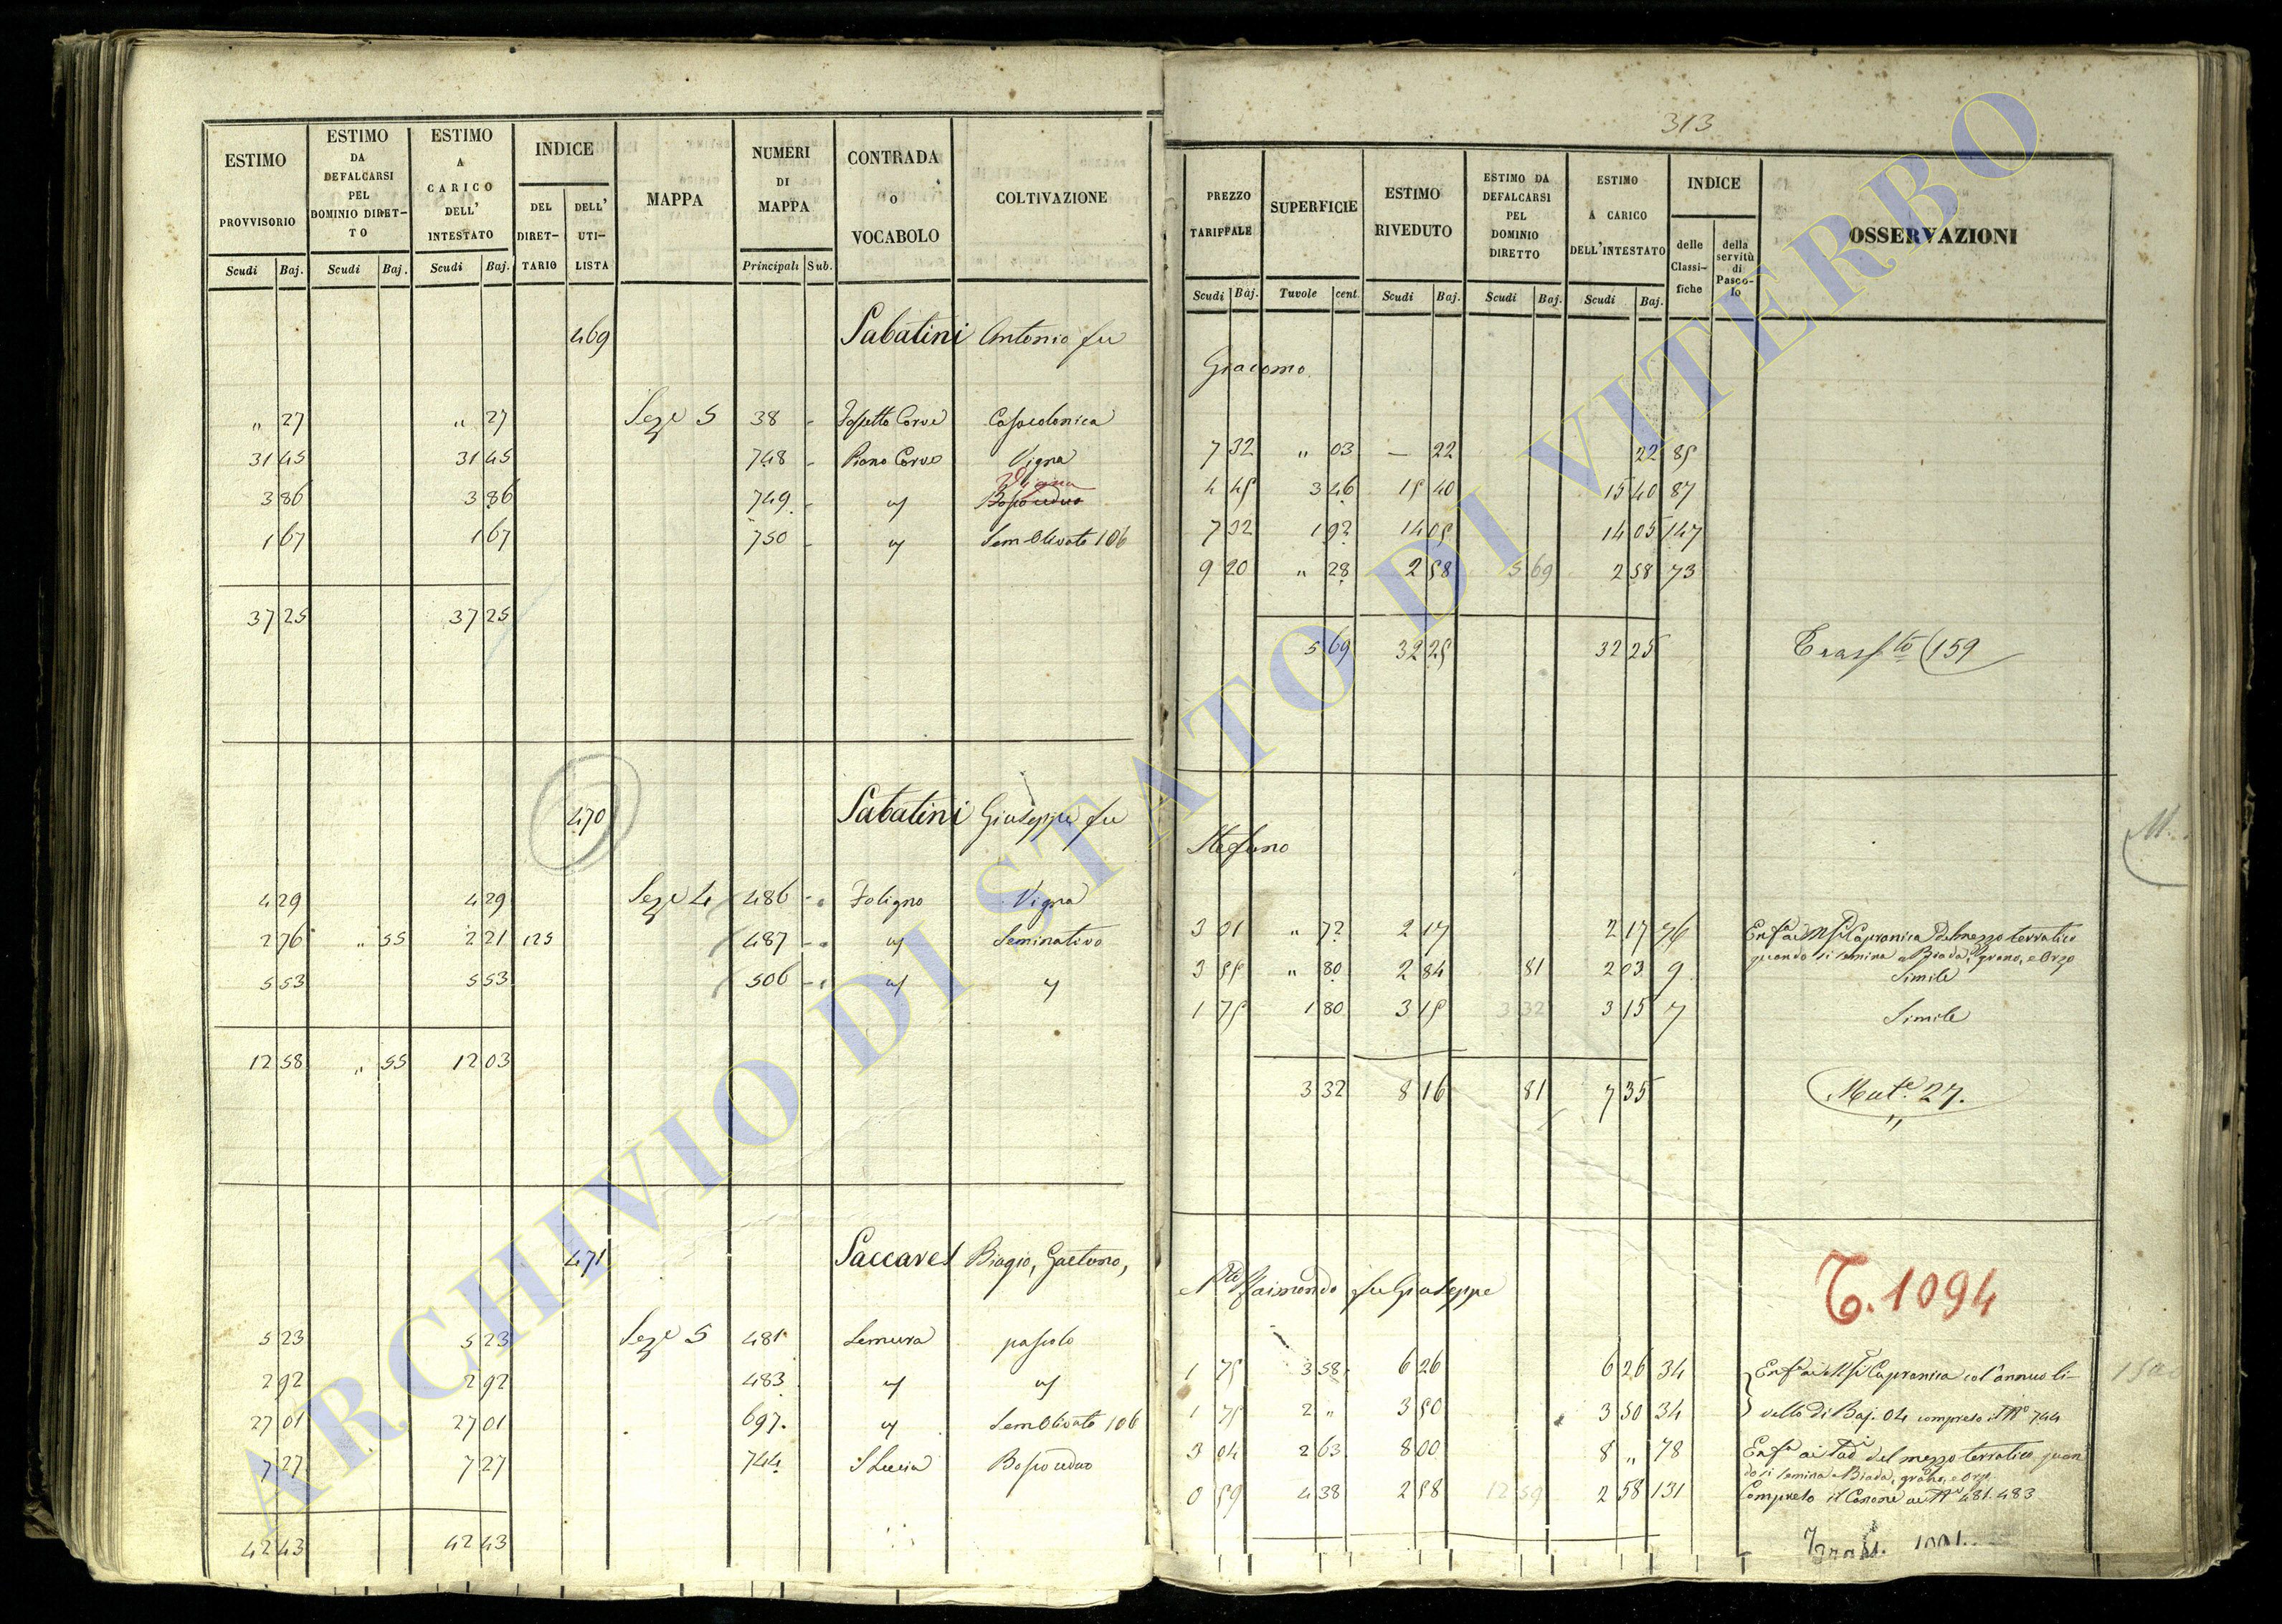 313
ESTIMO PROVVISORIO
ESTIMO DA DEFALCARSI PEL DOMINIO DIRETTO
ESTIMO A CARICO DELL' INTESTATO
INDICE
DEL DIRETTARIO
DELL' UTILISTA
MAPPA
NUMERI DI MAPPA
CONTRADA o VOCABOLO
COLTIVAZIONE
Scudi Baj. Scudi Baj. Scudi Baj. Principali Sub.
PREZZO TARIFFALE
SUPERFICIE
ESTIMO RIVEDUTO
ESTIMO DA DEFALCARSI PEL DOMINIO DIRETTO
ESTIMO A CARICO DELL'INTESTATO
INDICE
delle Classifiche
della servitù di Pascolo
OSSERVAZIONI
Scudi Baj. Tavole cent. Scudi Baj. Scudi Baj. Scudi Baj.
469 Sabatini Antonio fu Giacomo
„ 27 „ 27 Seze 5 38 - Fossetto Corve Casacolonica 7 32 „ 03 — 22 22 85
31 45 31 45 748 - Piano Corve Vigna 4 45 3 46 15 40 15 40 87
Vigna
3 86 3 86 749 - " Boscoceduo 7 32 1 92 14 05 14 05 147
1 67 1 67 750 - " Sem Olivato 106 9 20 „ 28 2 58 5 69 2 58 73
37 25 37 25 5 69 32 25 32 25 Trasfto 159
470 Sabatini Giuseppe fu Stefano
4 29 4 29 Seze 4 486 - Foligno Vigna 3 01 „ 72 2 17 2 17 76 Enfa Capranica del mezzo terratico
quando si semina a Biada, grano, e Orzo
2 76 „ 55 2 21 125 487 - " Seminativo 3 55 „ 80 2 84 81 2 03 9 Simile
5 53 5 53 506 - " " 1 75 1 80 3 15 3 32 3 15 7 Simile
12 58 „ 55 12 03 3 32 8 16 81 7 35 Mute 27.
471 Saccares Biagio, Gaetano, e Raimondo fu Giuseppe
T. 1094
5 23 5 23 Seze 5 481 Semura pascolo 1 75 3 58 6 26 6 26 34 Enfa Capranica col'annuo li-
2 92 2 92 483 " " 1 75 2 „ 3 50 3 50 34 vello di Baj. 04 compreso il No 744
27 01 27 01 697 " Sem Olivato 106 3 04 2 63 8 00 8 „ 78 Enfa ai del mezzo terratico quan
do si semina a Biada, grano, e Orzo
7 27 7 27 744 S Lucia Bosco ceduo 0 59 4 38 2 58 12 59 2 58 131 Compreso il Canone ai Ni 481. 483
42 43 42 43